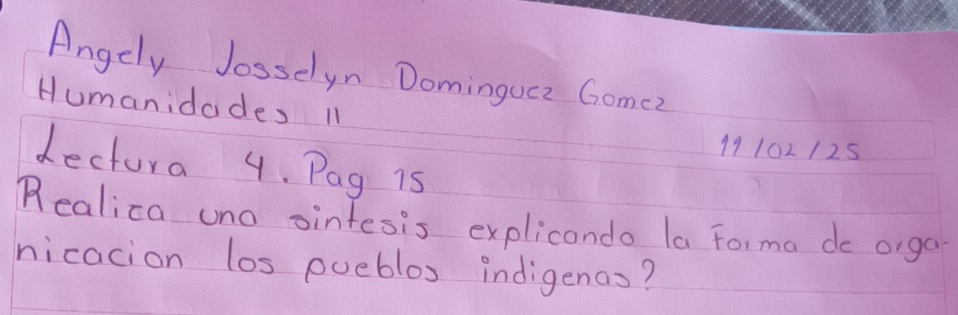 Angely Josselyn Dominguez Gomez
Humanidades II
11/02/25
Lectura 4. Pag 15
Realiza una sintesis explicando la forma de orga-
nicacion los pueblos indigenas?